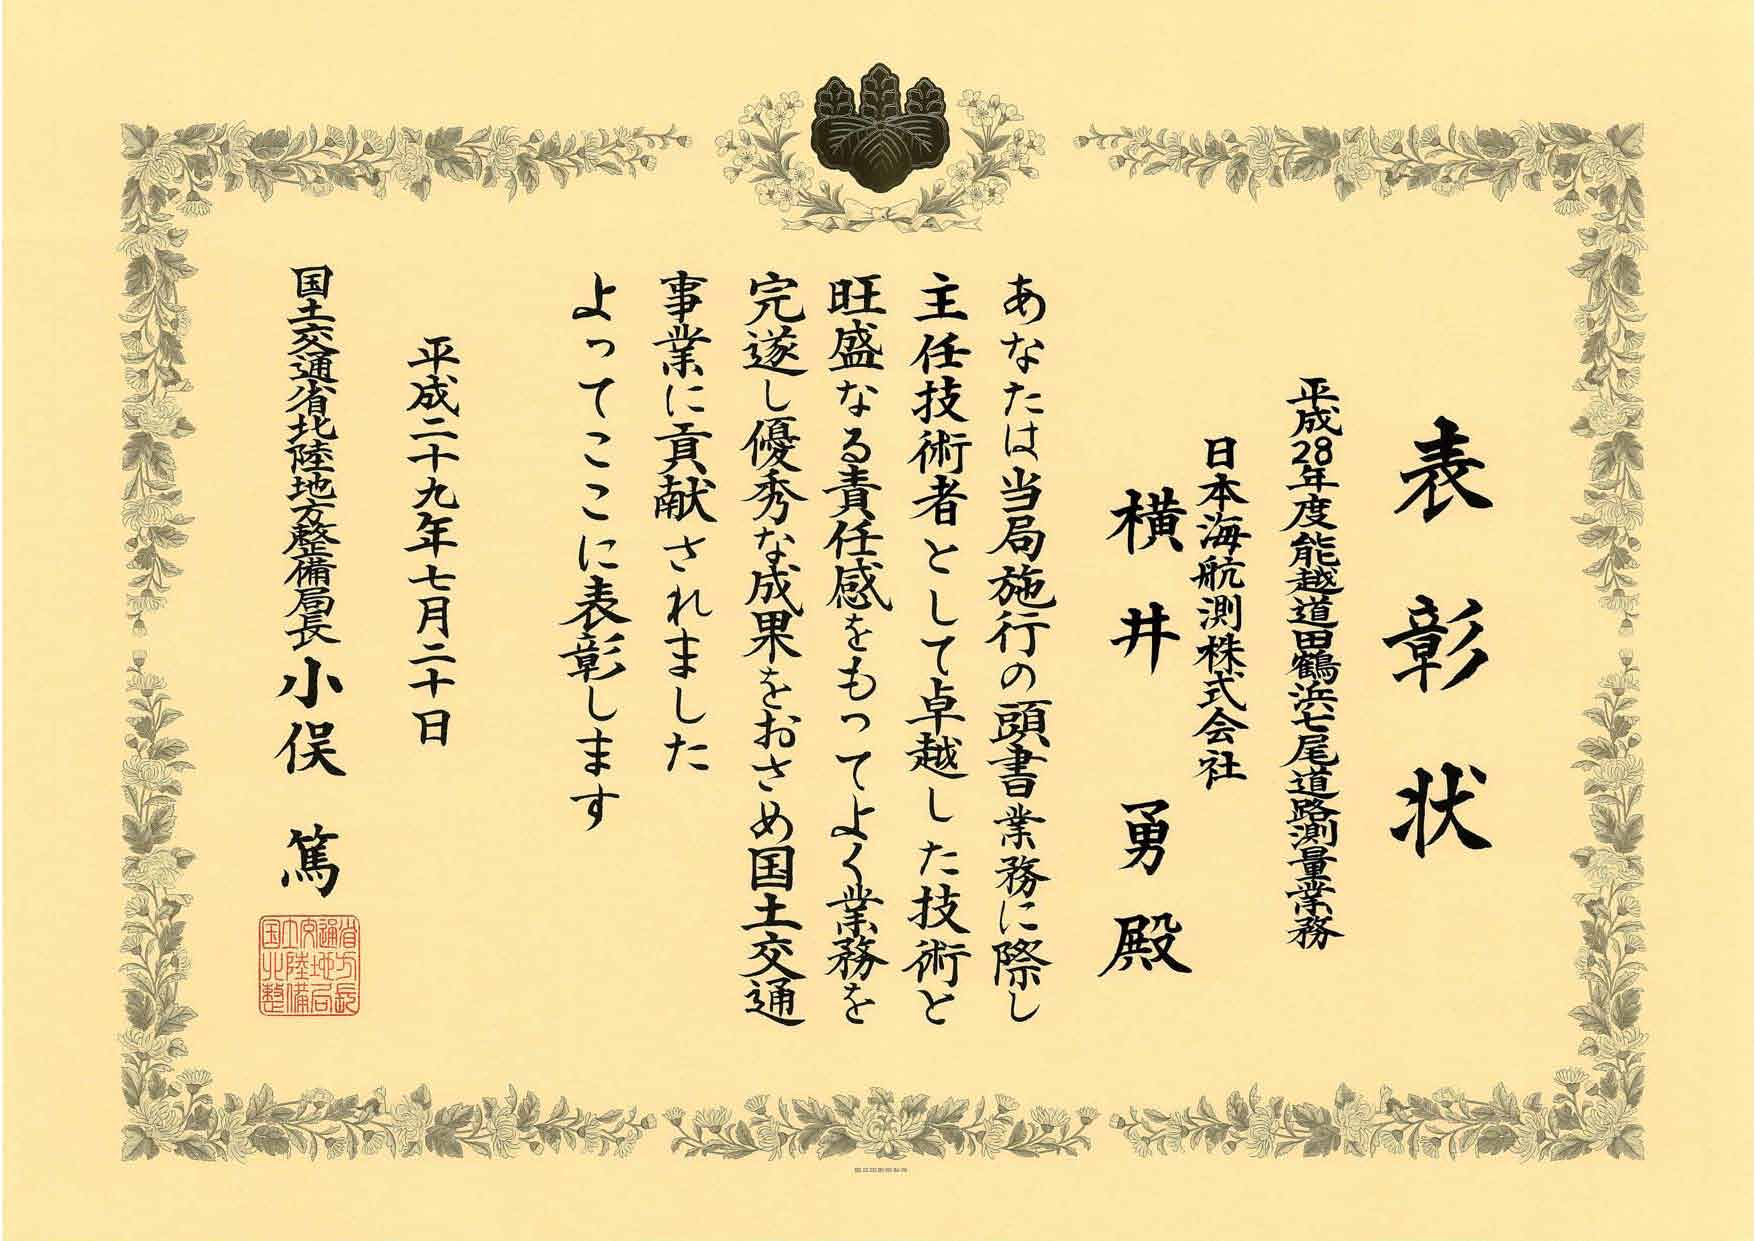 表彰状
平成28年度能越道田鶴浜七尾道路測量業務
日本海航測株式会社
横井 勇 殿
あなたは当局施行の頭書業務に際し
主任技術者として卓越した技術と
旺盛なる責任感をもってよく業務を
完遂し優秀な成果をおさめ国土交通
事業に貢献されました
よってここに表彰します
平成二十九年七月二十日
国土交通省北陸地方整備局長 小俣 篤
国土交通省
北陸地方
整備局長